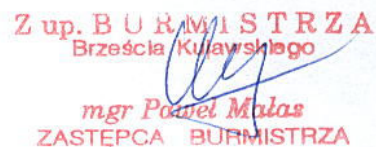 Z up. BURMISTRZA
Brześcia Kujawskiego
mgr Paweł Małas
ZASTĘPCA BURMISTRZA